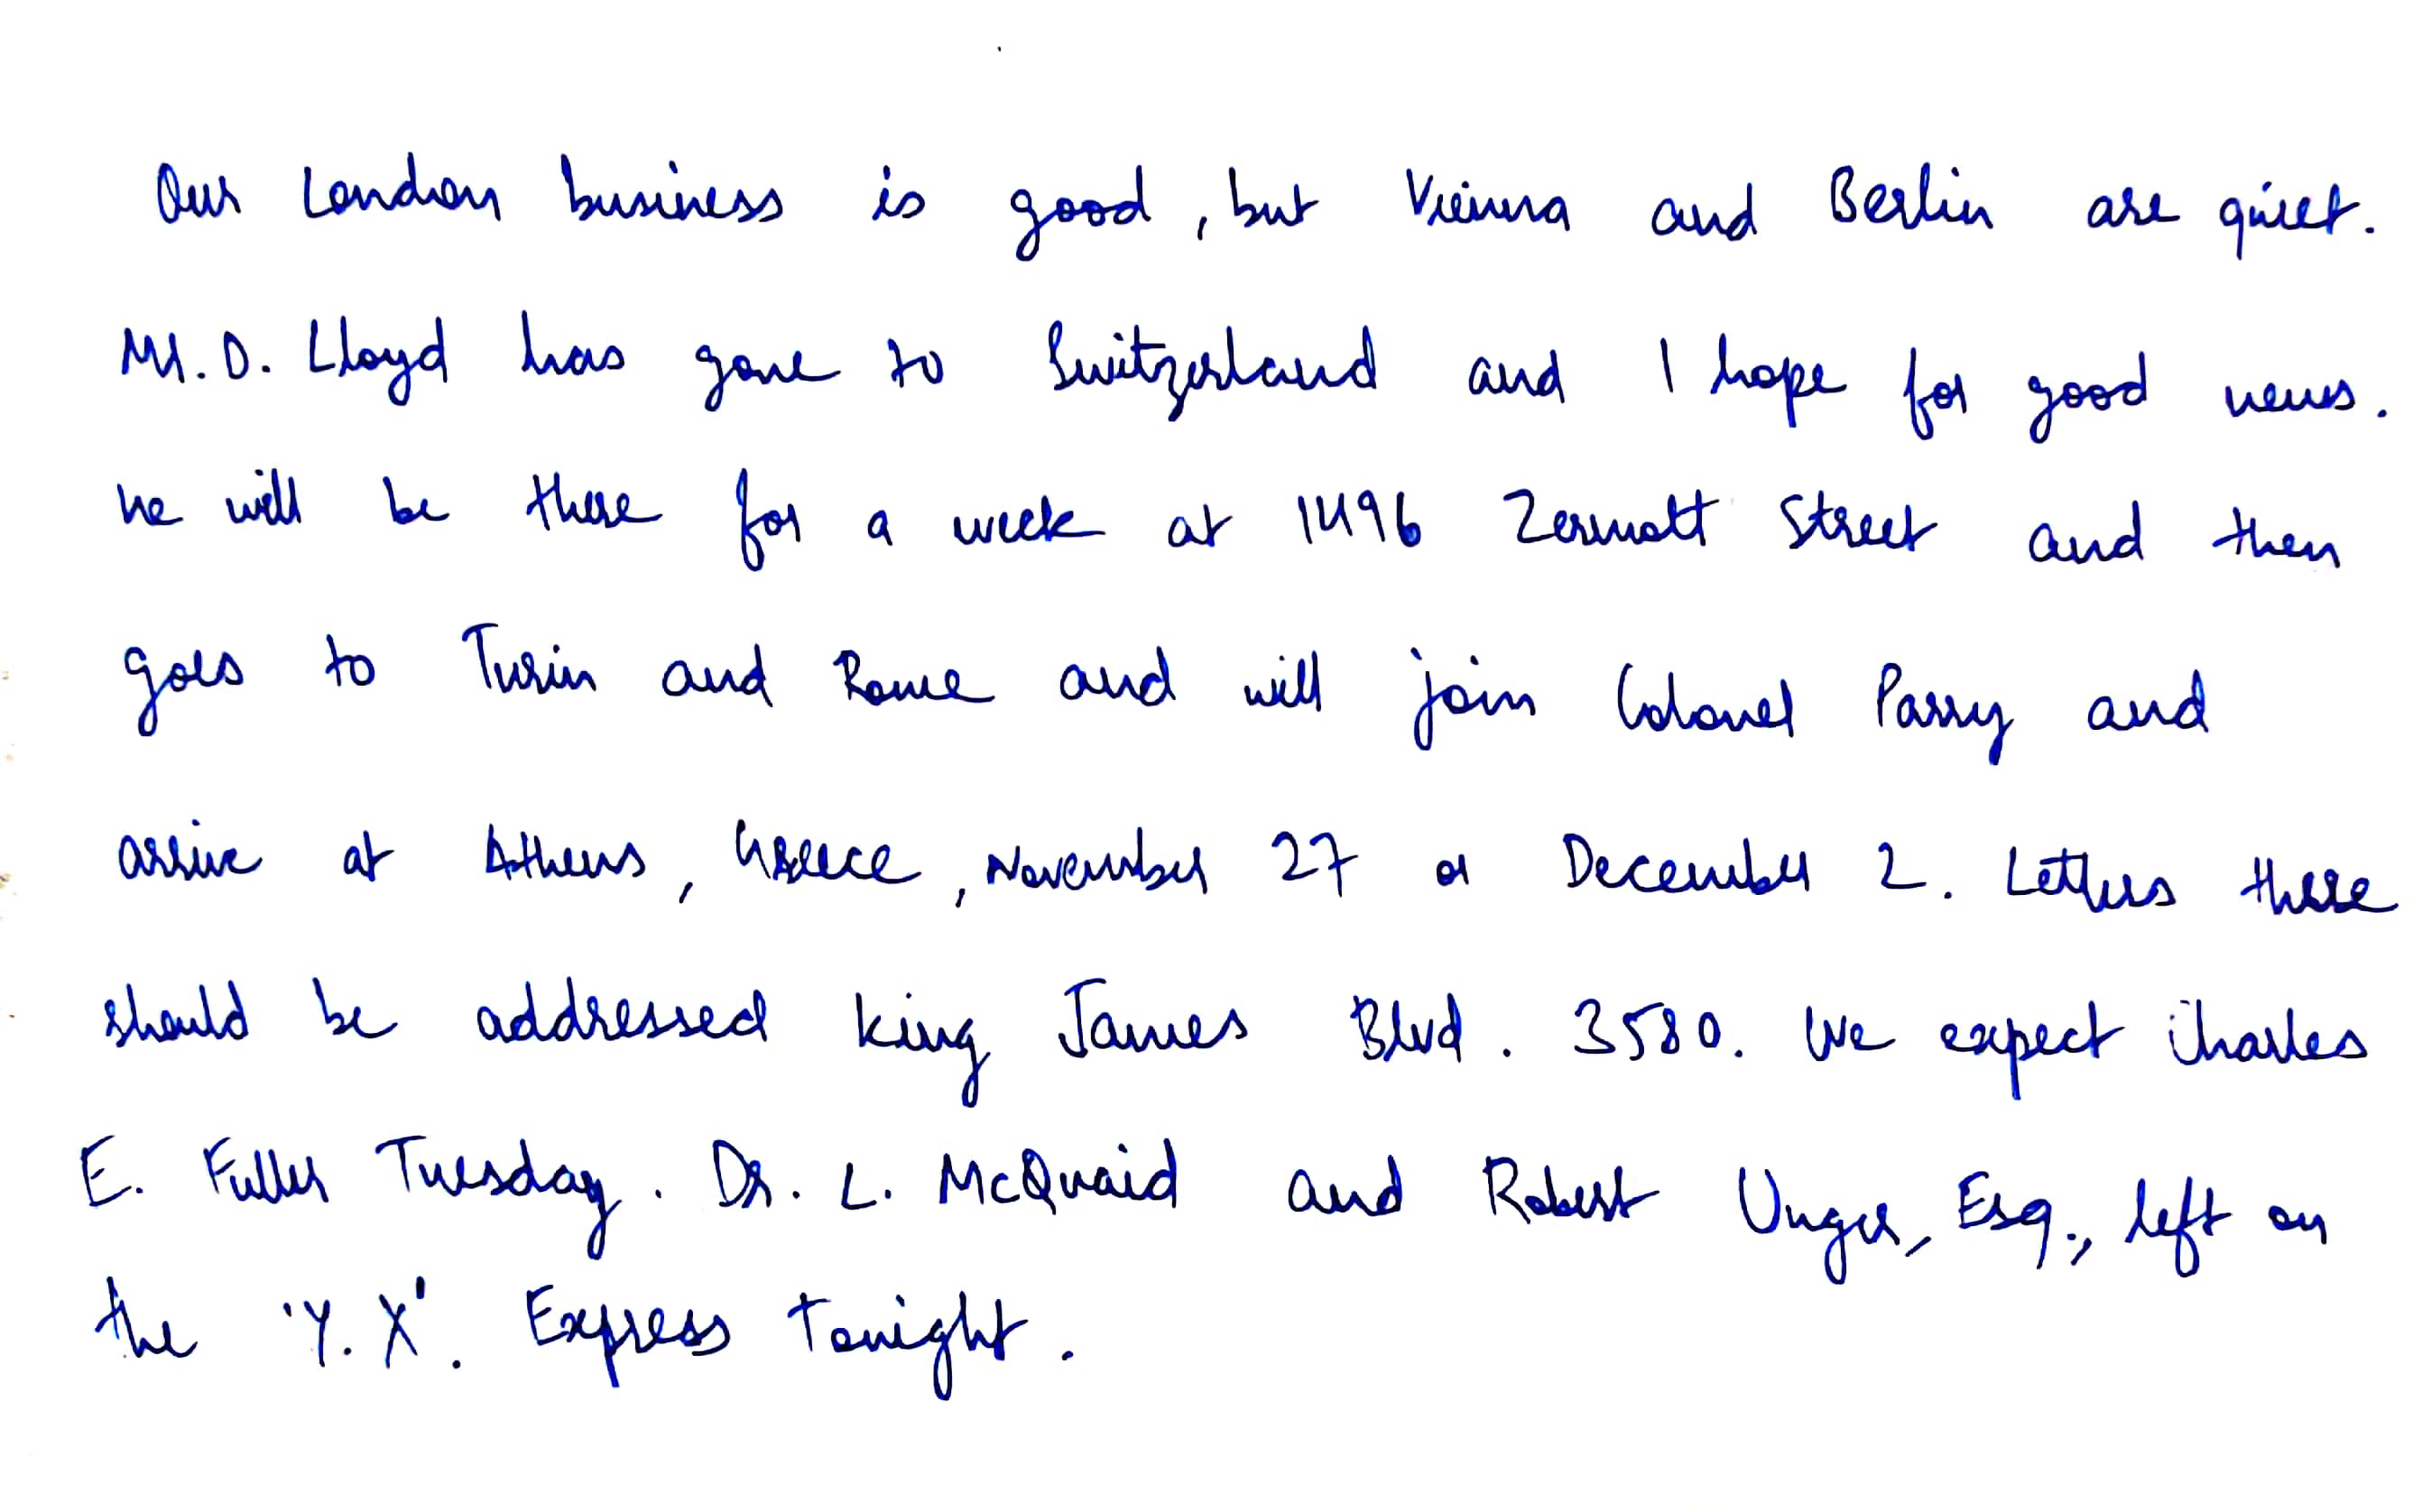 Our London business is good, but Vienna and Berlin are quiet.
Mr. D. Lloyd has gone to Switzerland and I hope for good news.
he will be there for a week at 1496 Zermott Street and then
goes to Turin and Rome and will join Colonel Parry and
arrive at Athens, Greece, November 27 or December 2. Letters there
should be addressed King James Blvd. 3580. We expect Charles
E. Fuller Tuesday. Dr. L. McQuaid and Robert Unger, Esq., left on
the 'Y. X'. Express Tonight.